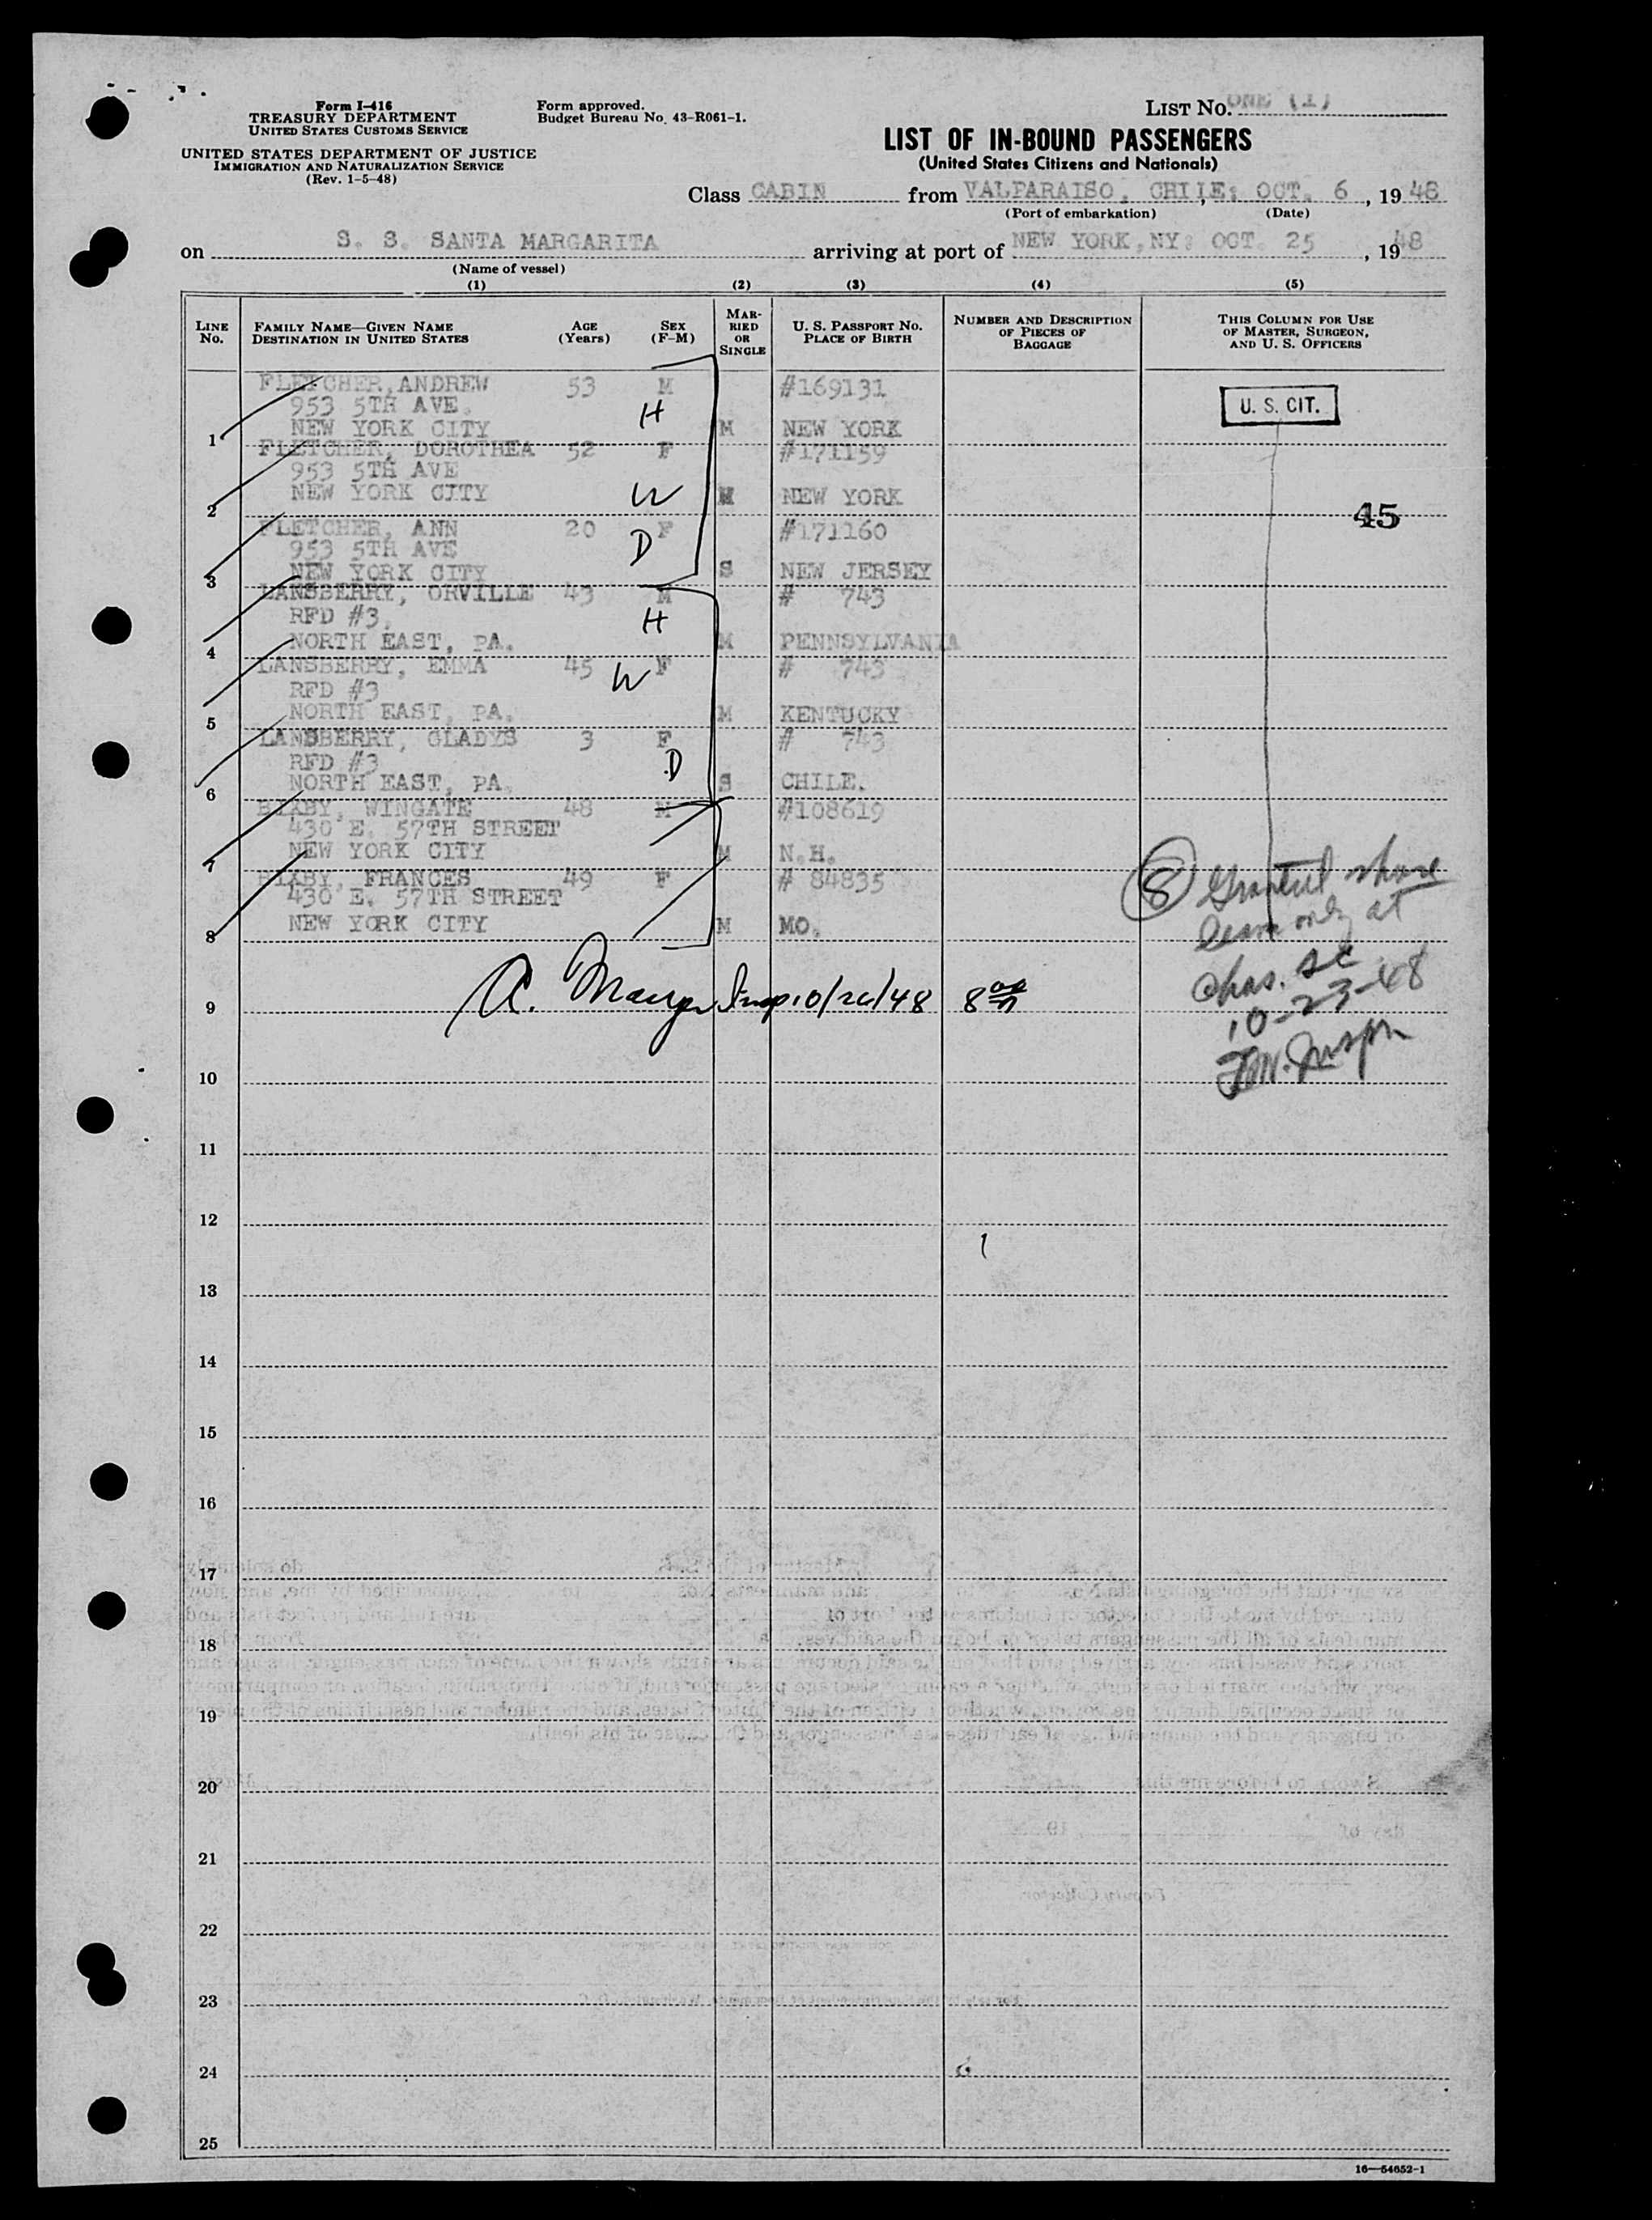 Form I-416
TREASURY DEPARTMENT
UNITED STATES CUSTOMS SERVICE
UNITED STATES DEPARTMENT OF JUSTICE
IMMIGRATION AND NATURALIZATION SERVICE
(Rev. 1-5-48)
Form approved.
Budget Bureau No. 43-R061-1.
LIST No. ONE (1)
LIST OF IN-BOUND PASSENGERS
(United States Citizens and Nationals)
Class CABIN from VALPARAISO, CHILE; OCT. 6, 1948
(Port of embarkation) (Date)
on S. S. SANTA MARGARITA arriving at port of NEW YORK, NY; OCT. 25, 1948
(Name of vessel)
(1) (2) (3) (4) (5)
LINE No.
FAMILY NAME—GIVEN NAME
DESTINATION IN UNITED STATES
AGE (Years)
SEX (F-M)
MARRIED OR SINGLE
U. S. PASSPORT No.
PLACE OF BIRTH
NUMBER AND DESCRIPTION OF PIECES OF BAGGAGE
THIS COLUMN FOR USE OF MASTER, SURGEON, AND U. S. OFFICERS
FLETCHER, ANDREW 53 M #169131
953 5TH AVE. H U. S. CIT.
1 NEW YORK CITY M NEW YORK
FLETCHER, DOROTHEA 52 F #171159
953 5TH AVE
2 NEW YORK CITY W M NEW YORK
45
FLETCHER, ANN 20 F #171160
953 5TH AVE D
3 NEW YORK CITY S NEW JERSEY
LANSBERRY, ORVILLE 43 M # 743
RFD #3, H
4 NORTH EAST, PA. M PENNSYLVANIA
LANSBERRY, EMMA 45 W F # 743
RFD #3
5 NORTH EAST, PA. M KENTUCKY
LANSBERRY, GLADYS 3 F # 743
RFD #3 D
6 NORTH EAST, PA. S CHILE.
BIXBY, WINGATE 48 M #108619
430 E. 57TH STREET
7 NEW YORK CITY M N.H.
BIXBY, FRANCES 49 F # 84835
430 E. 57TH STREET
8 NEW YORK CITY M MO.
(8) Granted shore
leave only at
Chas. SC
10-23-48
Inspr
9 A. Insp 10/26/48 8
10
11
12
13
14
15
16
17
18
19
20
21
22
23
24
25
16—54652-1